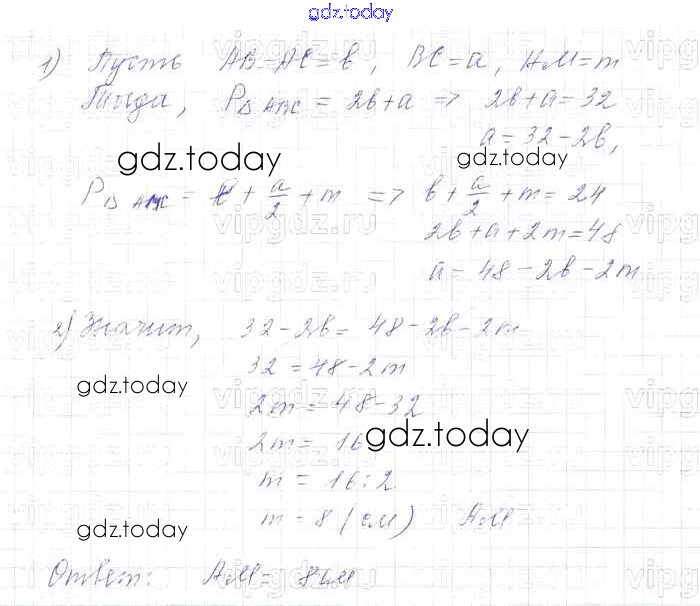 gdz.today
1) Пусть AB=AC=b, BC=a, AM=m
Тогда, P△ABC = 2b+a => 2b+a=32
a=32-2b,
gdz.today gdz.today
P△AMC = b + a/2 + m => b + a/2 + m = 24
2b+a+2m=48
a=48-2b-2m
2) Значит, 32-2b=48-2b-2m
32=48-2m
gdz.today
2m=48-32
2m=16
gdz.today
m=16:2
m=8 (см) AM
gdz.today
Ответ: AM=8см